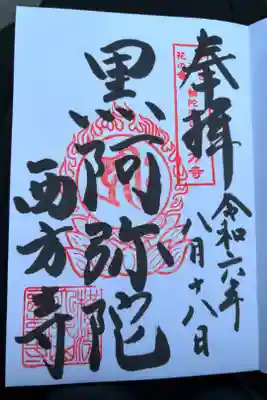 奉拝
令和六年
八月十八日
黒阿弥陀
西方寺